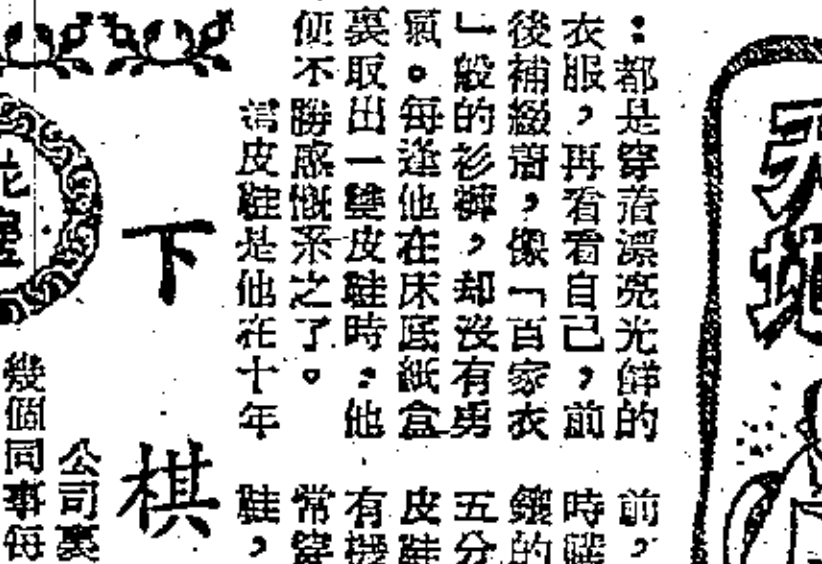 天地
：都是穿着漂亮光鮮的
衣服，再看看自己，前
後補綴着，像「百家衣
」般的衫褲，却沒有勇
氣。每逢他在床底紙盒
裏取出一雙皮鞋時：他
便不勝感慨系之了。
這皮鞋是他在十年
前，
時
的
五分
皮鞋
有
常穿
鞋，
下棋
公司裏
幾個同事每